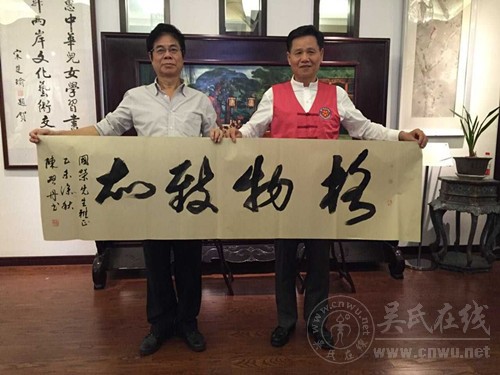 格物致知
國榮先生雅正
乙未深秋
中華兒女學習書
兩岸文化藝術交
宋楚瑜題賀
吴氏在线
www.cnwu.net